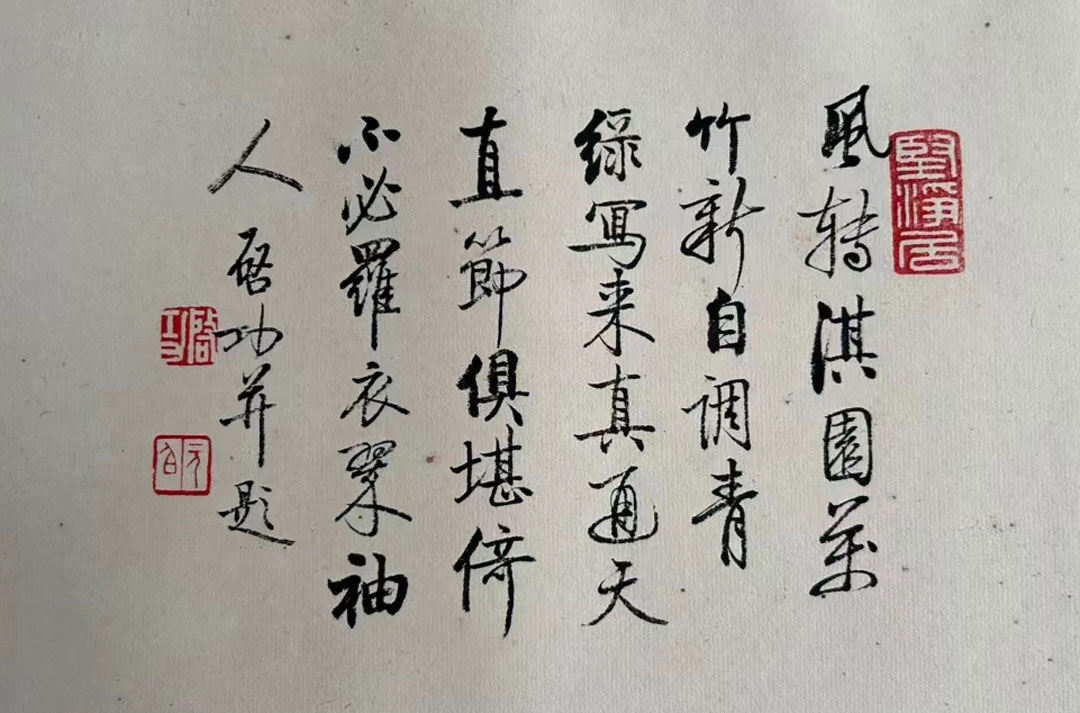 堅淨居
風轉淇園萬
竹新自調青
緑寫来真通天
直節俱堪倚
不必羅衣翠袖
人 啓功并題
啓功
元白